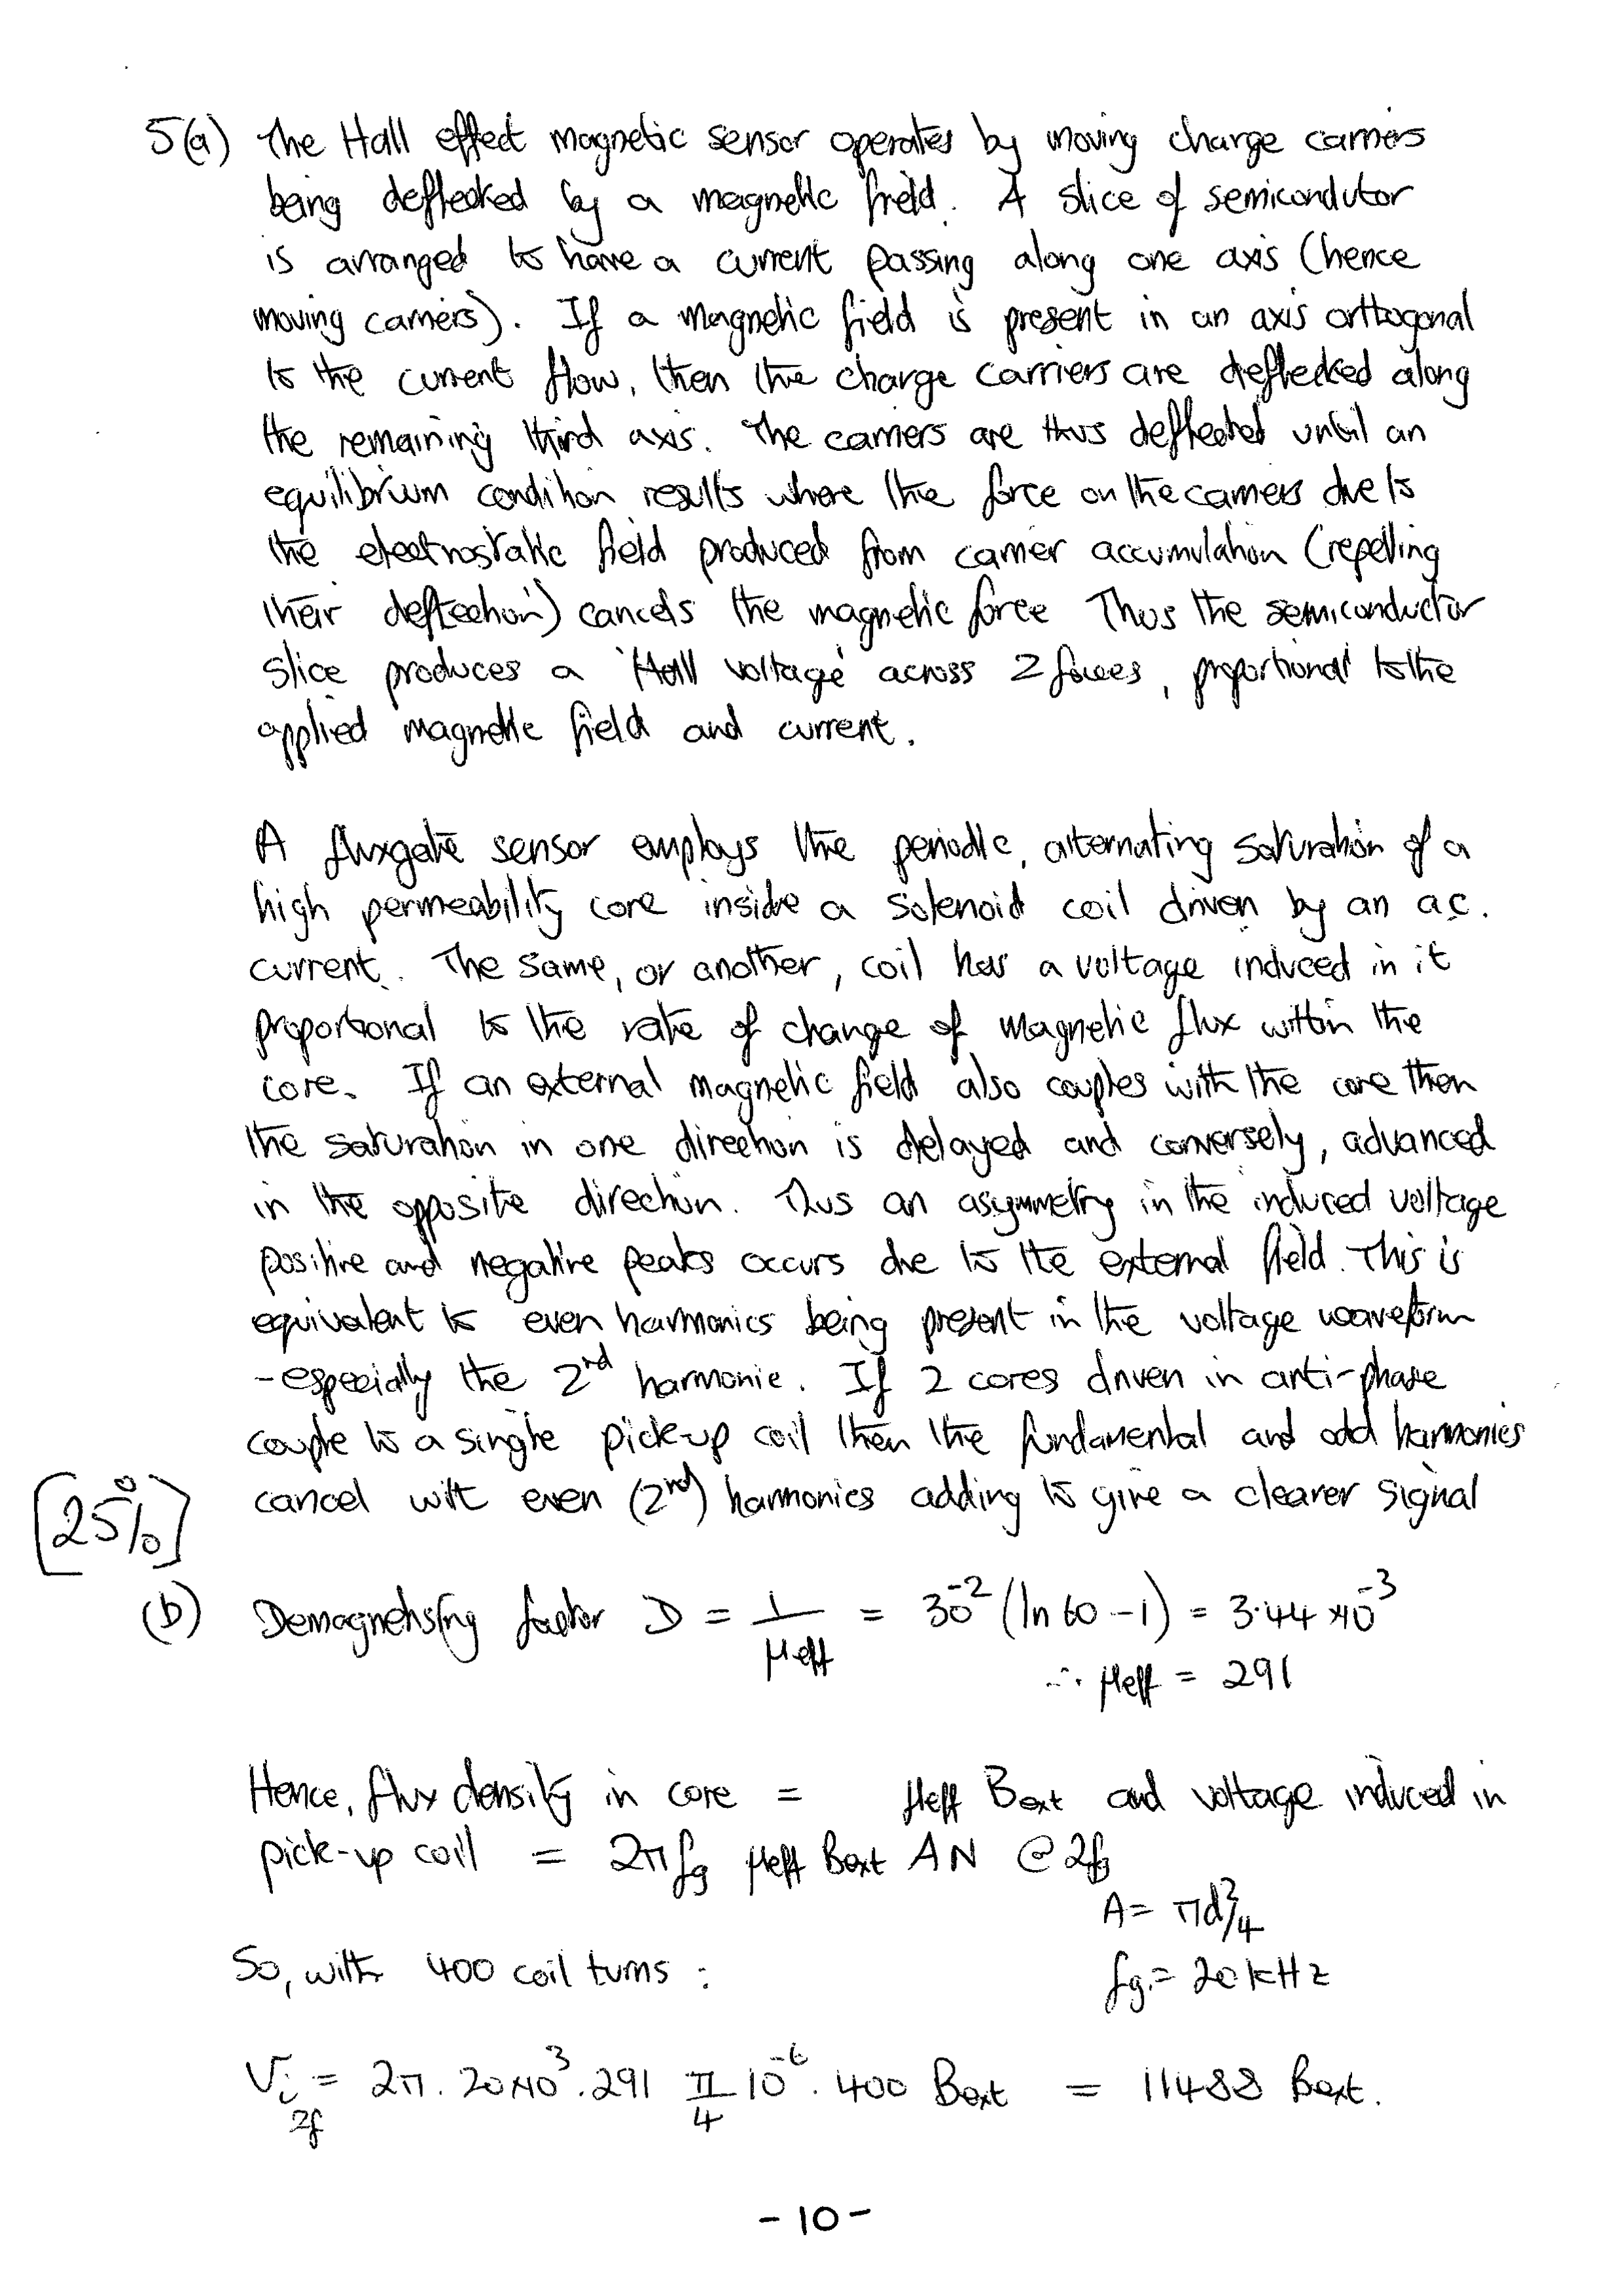 5(a) The Hall effect magnetic sensor operates by moving charge carriers
being deflected by a magnetic field. A slice of semicondutor
is arranged to have a current passing along one axis (hence
moving carriers). If a magnetic field is present in an axis orthogonal
to the current flow, then the charge carriers are deflected along
the remaining third axis. The carriers are thus deflected until an
equilibrium condition results where the force on the carriers due to
the electrostatic field produced from carrier accumulation (repelling
their deflection) cancels the magnetic force Thus the semiconductor
slice produces a 'Hall voltage' across 2 faces, proportional to the
applied magnetic field and current.
A fluxgate sensor employs the periodic, alternating saturation of a
high permeability core inside a solenoid coil driven by an a.c.
current. The same, or another, coil has a voltage induced in it
proportional to the rate of change of magnetic flux within the
core. If an external magnetic field also couples with the core then
the saturation in one direction is delayed and conversely, advanced
in the opposite direction. Thus an asymmetry in the induced voltage
positive and negative peaks occurs due to the external field. This is
equivalent to even harmonics being present in the voltage waveform
- especially the 2nd harmonic. If 2 cores driven in anti-phase
couple to a single pick-up coil then the fundamental and odd harmonics
cancel with even (2nd) harmonics adding to give a clearer signal
[25%]
(b) Demagnetising factor D = 1/μeff = 30^-2 (ln 60 - 1) = 3.44 x10^-3
∴ μeff = 291
Hence, flux density in core = μeff Bext and voltage induced in
pick-up coil = 2πfg μeff Bext AN @ 2fg
A = πd²/4
So, with 400 coil turns :
fg = 20 kHz
Vi2f = 2π. 20x10^3. 291 π/4 10^-6. 400 Bext = 11488 Bext.
- 10 -